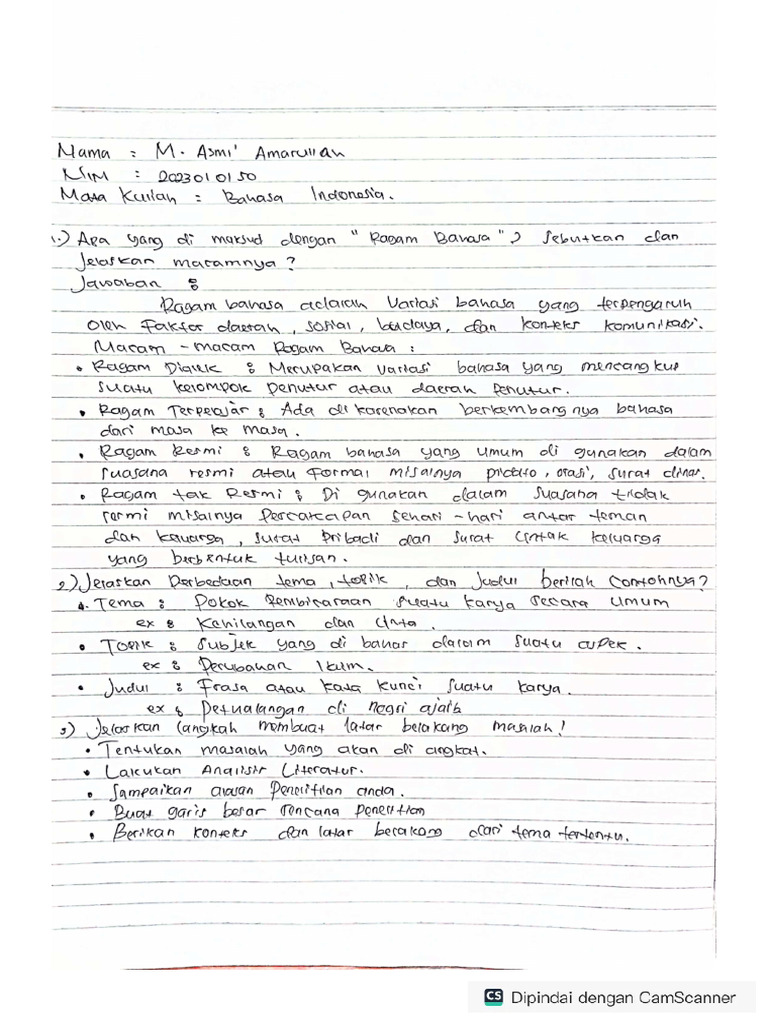 Nama : M. Asmi' Amarullah
NIM : 2023010150
Mata Kuliah : Bahasa Indonesia.
1.) Apa yang di maksud dengan " Ragam Bahasa " ? Sebutkan dan
Jelaskan macamnya ?
Jawaban :
Ragam bahasa adalah Variasi bahasa yang terpengaruh
oleh Faktor daerah, sosial, budaya, dan konteks komunikasi.
Macam - macam Ragam Bahasa :
• Ragam Dialek : Merupakan Variasi bahasa yang mencangkup
suatu kelompok penutur atau daerah penutur.
• Ragam Terpelajar : Ada di karenakan berkembangnya bahasa
dari masa ke masa.
• Ragam Resmi : Ragam bahasa yang umum di gunakan dalam
suasana resmi atau formal misalnya pidato, orasi, surat dinas.
• Ragam tak Resmi : Di gunakan dalam suasana tidak
resmi misalnya Percakapan sehari - hari antar teman
dan keluarga, surat Pribadi dan surat Untuk keluarga
yang berbentuk tulisan.
2.) Jelaskan Perbedaan tema, topik, dan Judul berilah Contohnya ?
• Tema : Pokok Pembicaraan suatu karya secara umum
ex : Kehilangan dan Cinta.
• Topik : Subjek yang di bahas dalam suatu aspek.
ex : Perubahan Iklim.
• Judul : Frasa atau kata kunci suatu karya.
ex : Petualangan di Negri ajaib
3) Jelaskan langkah membuat latar belakang masalah !
• Tentukan masalah yang akan di angkat.
• Lakukan Analisis Literatur.
• Sampaikan alasan Penelitian anda.
• Buat garis besar rencana penelitian
• Berikan konteks dan latar belakang dari tema tertentu.
CS Dipindai dengan CamScanner